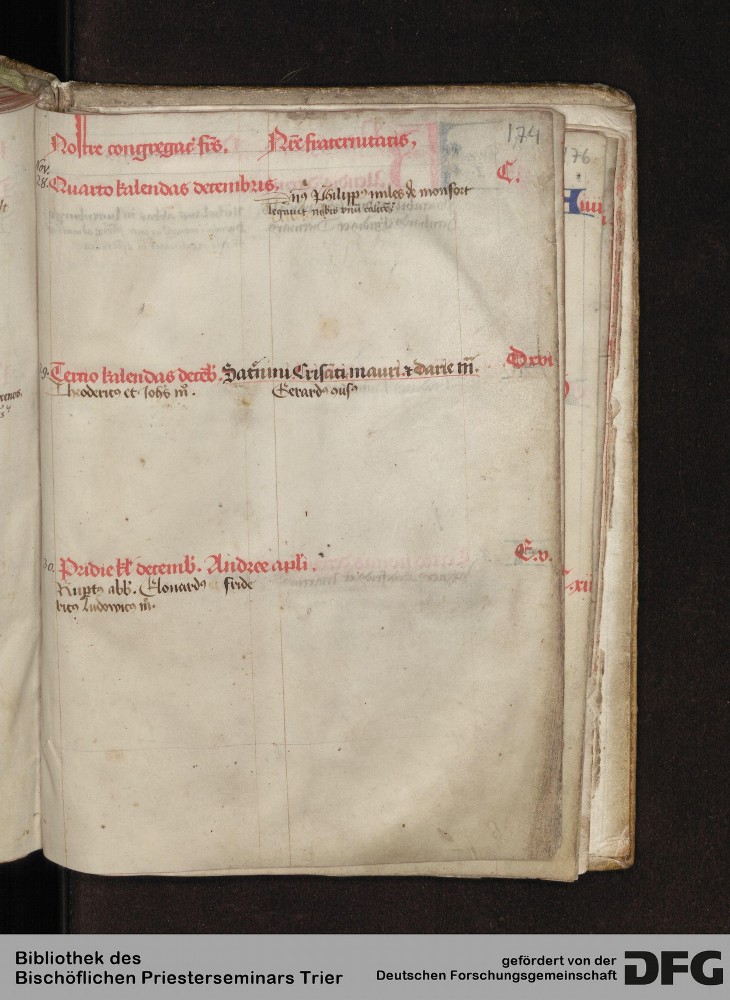 174
176
Nostre congregac̄ fr̄s. Nr̄e fraternitatis,
Nov.
28. Quarto kalendas decembris, C.
Philippꝰ miles de monfort
legauit nobis vnū calicē
iiii
Tercio kalendas decēb. Crisāti mauri ⁊ darie m̄. D xvi
Theodericꝰ et Ioh̄s m̄. Gerardꝰ
30. Pridie kl̄ decemb̄. Andree apl̄i. E. v.
Rup̄tꝰ abb̄. fride
ricꝰ Ludowicꝰ m̄.
xii
Bibliothek des
Bischöflichen Priesterseminars Trier
gefördert von der
Deutschen Forschungsgemeinschaft
DFG